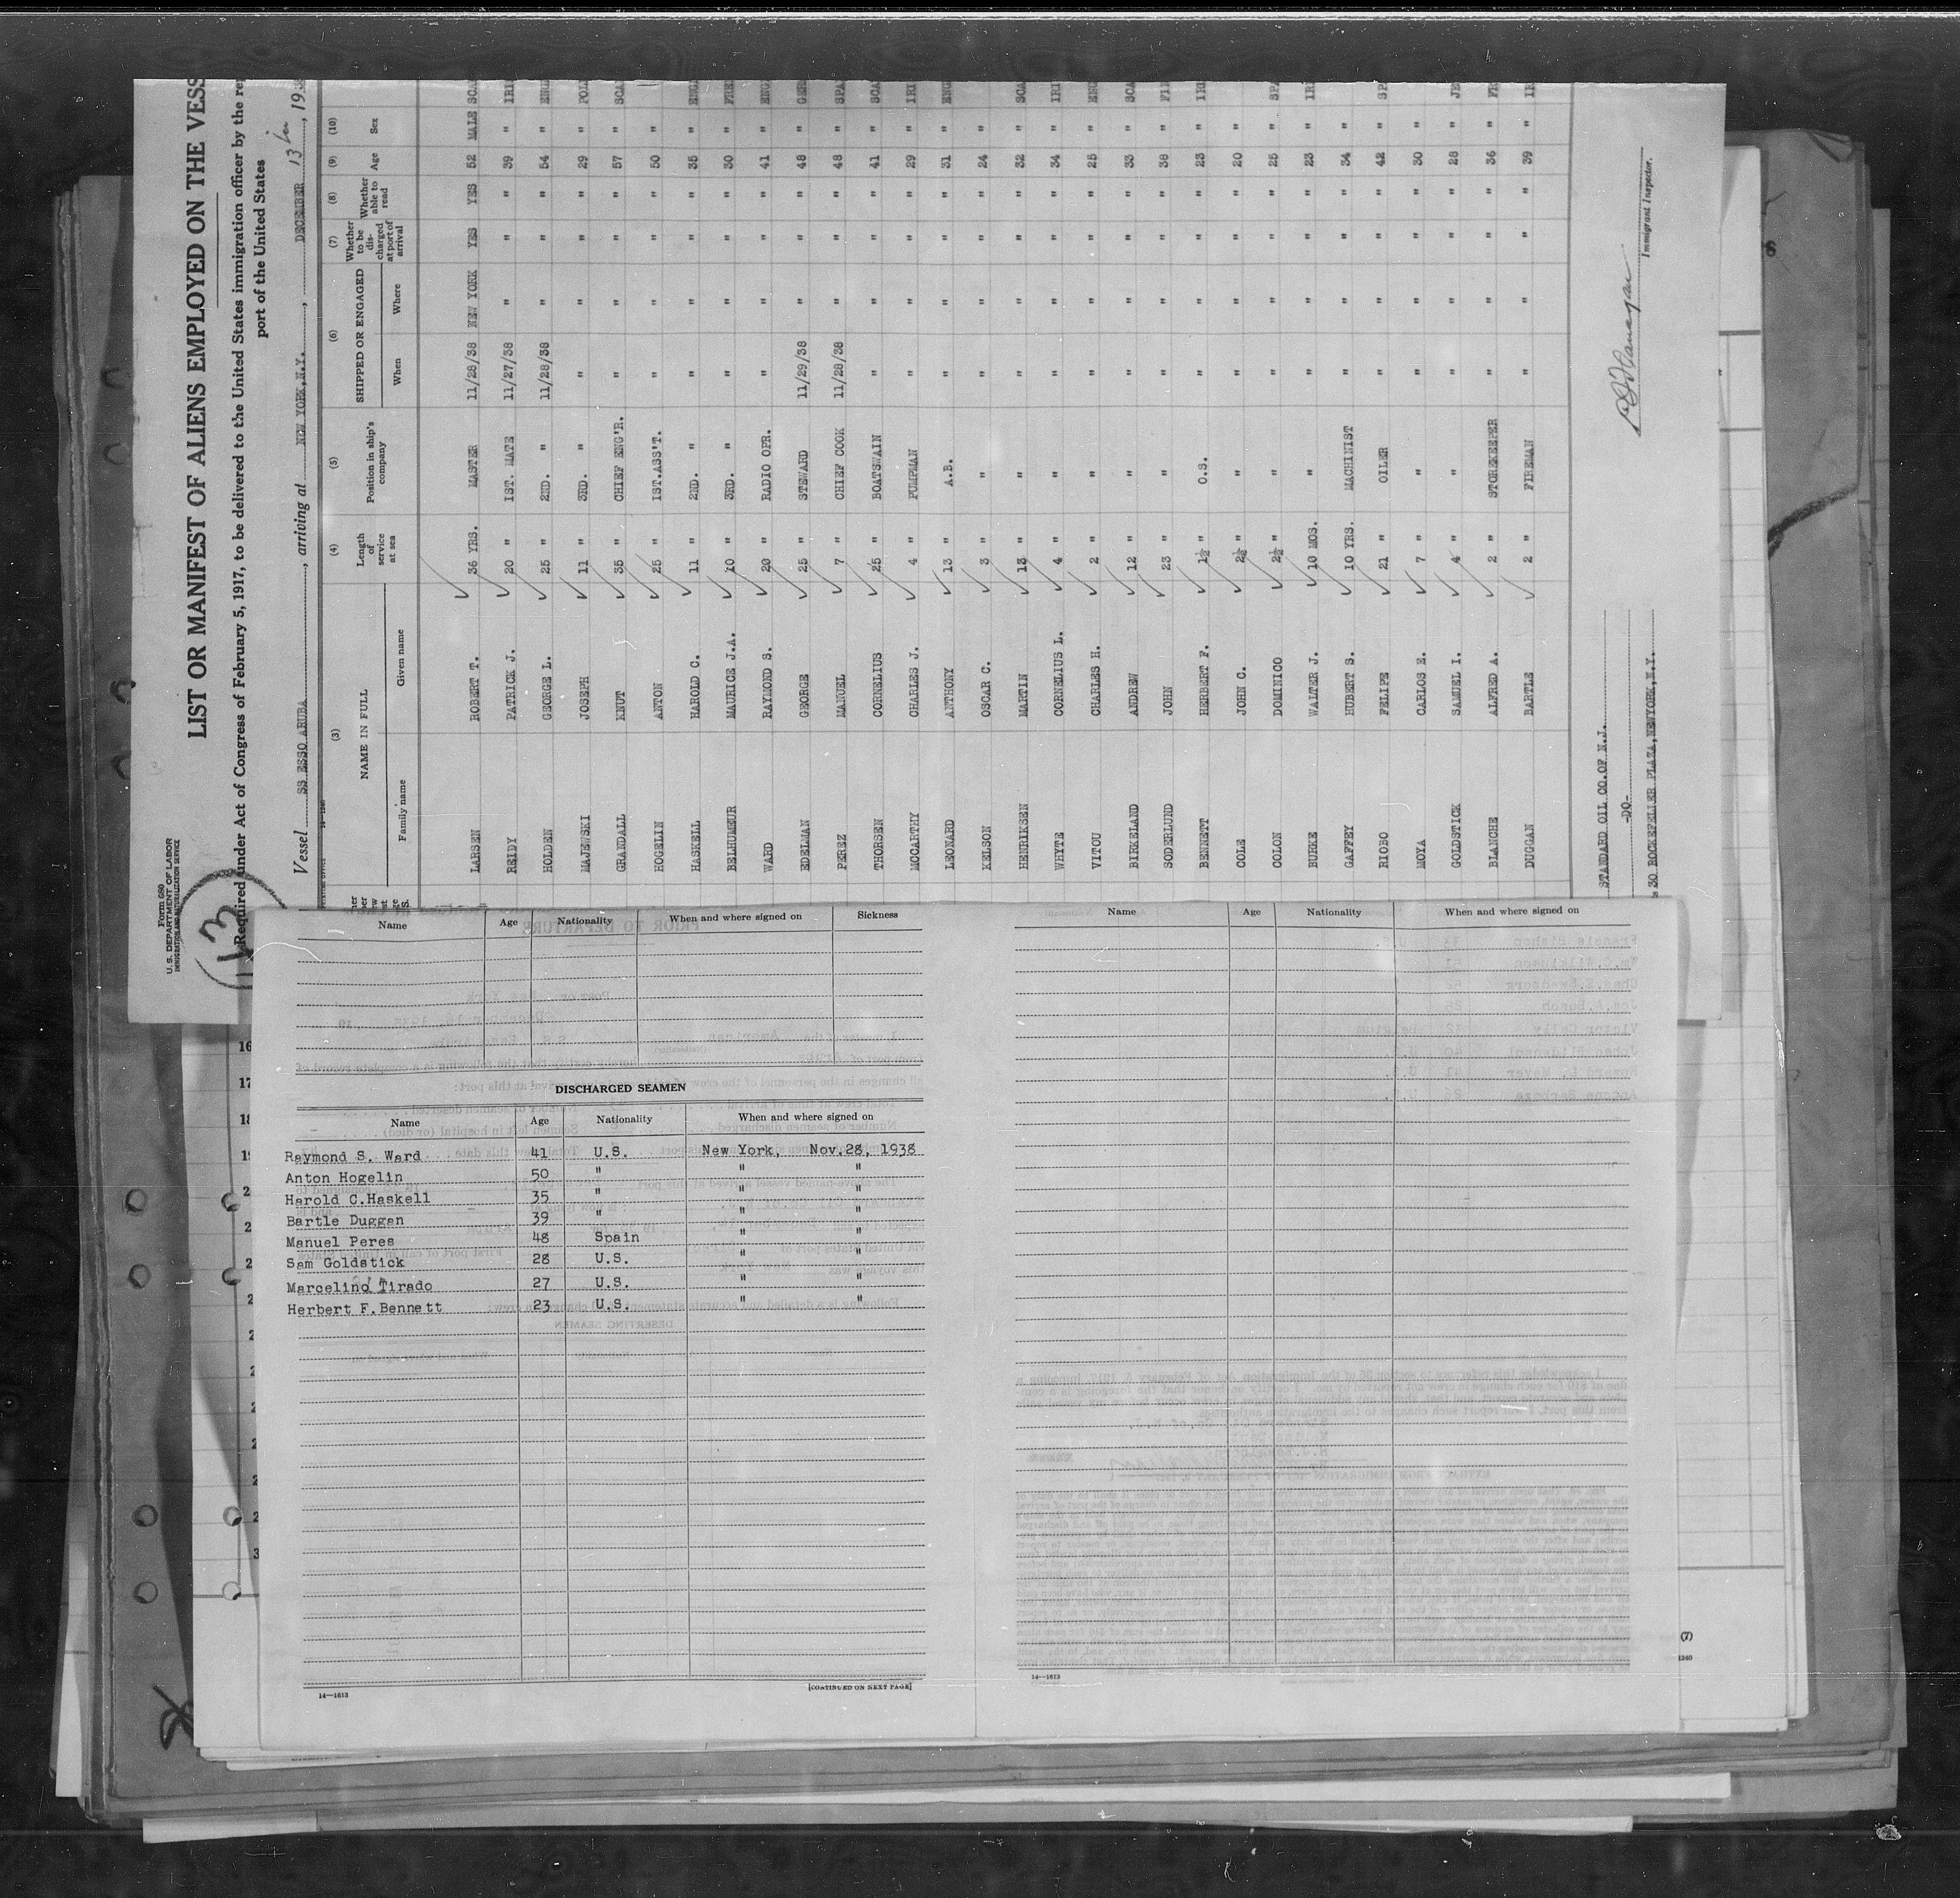 Form 680
U. S. DEPARTMENT OF LABOR
IMMIGRATION AND NATURALIZATION SERVICE
13
LIST OR MANIFEST OF ALIENS EMPLOYED ON THE VESS
Required under Act of Congress of February 5, 1917, to be delivered to the United States immigration officer by the re
port of the United States
Vessel SS ESSO ARUBA, arriving at NEW YORK, N.Y., DECEMBER 13th, 193
(3) (4) (5) (6) (7) (8) (9) (10)
NAME IN FULL Length of service at sea Position in ship's company SHIPPED OR ENGAGED Whether to be discharged at port of arrival Whether able to read Age Sex
Family name Given name When Where
LARSEN ROBERT T. 36 YRS. MASTER 11/28/38 NEW YORK YES YES 52 MALE SCA
REIDY PATRICK J. 20 " IST. MATE 11/27/38 " " " 39 " IRI
HOLDEN GEORGE L. 25 " 2ND. " 11/28/38 " " " 54 " ENG
MAJEWSKI JOSEPH 11 " 3RD. " " " " " 29 " POL
GRANDALL KNUT 35 " CHIEF ENG'R. " " " " 57 " SCA
HOGELIN ANTON 25 " IST.ASS'T. " " " " 50 "
HASKELL HAROLD C. 11 " 2ND. " " " " " 35 " ENG
BELHUMEUR MAURICE J.A. 10 " 3RD. " " " " " 30 " FRE
WARD RAYMOND S. 20 " RADIO OPR. " " " " 41 " ENG
EDELMAN GEORGE 25 " STEWARD 11/29/38 " " " 48 " GER
PEREZ MANUEL 7 " CHIEF COOK 11/28/38 " " " 48 " SPA
THORSEN CORNELIUS 25 " BOATSWAIN " " " " 41 " SCA
MCCARTHY CHARLES J. 4 " PUMPMAN " " " " 29 " IRI
LEONARD ANTHONY 13 " A.B. " " " " 31 " ENG
KELSON OSCAR C. 3 " " " " " " 24 "
HENRIKSEN MARTIN 13 " " " " " " 32 " SCA
WHYTE CORNELIUS L. 4 " " " " " " 34 " IRI
VITOU CHARLES H. 2 " " " " " " 25 " EN
BIRKELAND ANDREW 12 " " " " " " 33 " SCA
SODERLUND JOHN 23 " " " " " " 38 " FI
BENNETT HERBERT F. 1½ " O.S. " " " " 23 " IR
COLE JOHN C. 2½ " " " " " " 20 "
COLON DOMINICO 2½ " " " " " " 25 " SP
BURKE WALTER J. 10 MOS. " " " " " 23 " IR
GAFFEY HUBERT S. 10 YRS. MACHINIST " " " " 34 "
RIOBO FELIPE 21 " OILER " " " " 42 " SP
MOYA CARLOS E. 7 " " " " " " 30 "
GOLDSTICK SAMUEL I. 4 " " " " " " 28 " JE
BLANCHE ALFRED A. 2 " STOREKEEPER " " " " 36 " FR
DUGGAN BARTLE 2 " FIREMAN " " " " 39 " IR
STANDARD OIL CO. OF N.J.
-DO-
30 ROCKEFELLER PLAZA, NEWYORK, N.Y.
Immigrant Inspector.
Name Age Nationality When and where signed on Sickness
DISCHARGED SEAMEN
Name Age Nationality When and where signed on
Raymond S. Ward 41 U.S. New York, Nov.28, 1938
Anton Hogelin 50 " " "
Harold C.Haskell 35 " " "
Bartle Duggan 39 " " "
Manuel Peres 48 Spain " "
Sam Goldstick 28 U.S. " "
Marcelino Tirado 27 U.S. " "
Herbert F.Bennett 23 U.S. " "
14—1613
[CONTINUED ON NEXT PAGE]
Name Age Nationality When and where signed on
14—1613
16
17